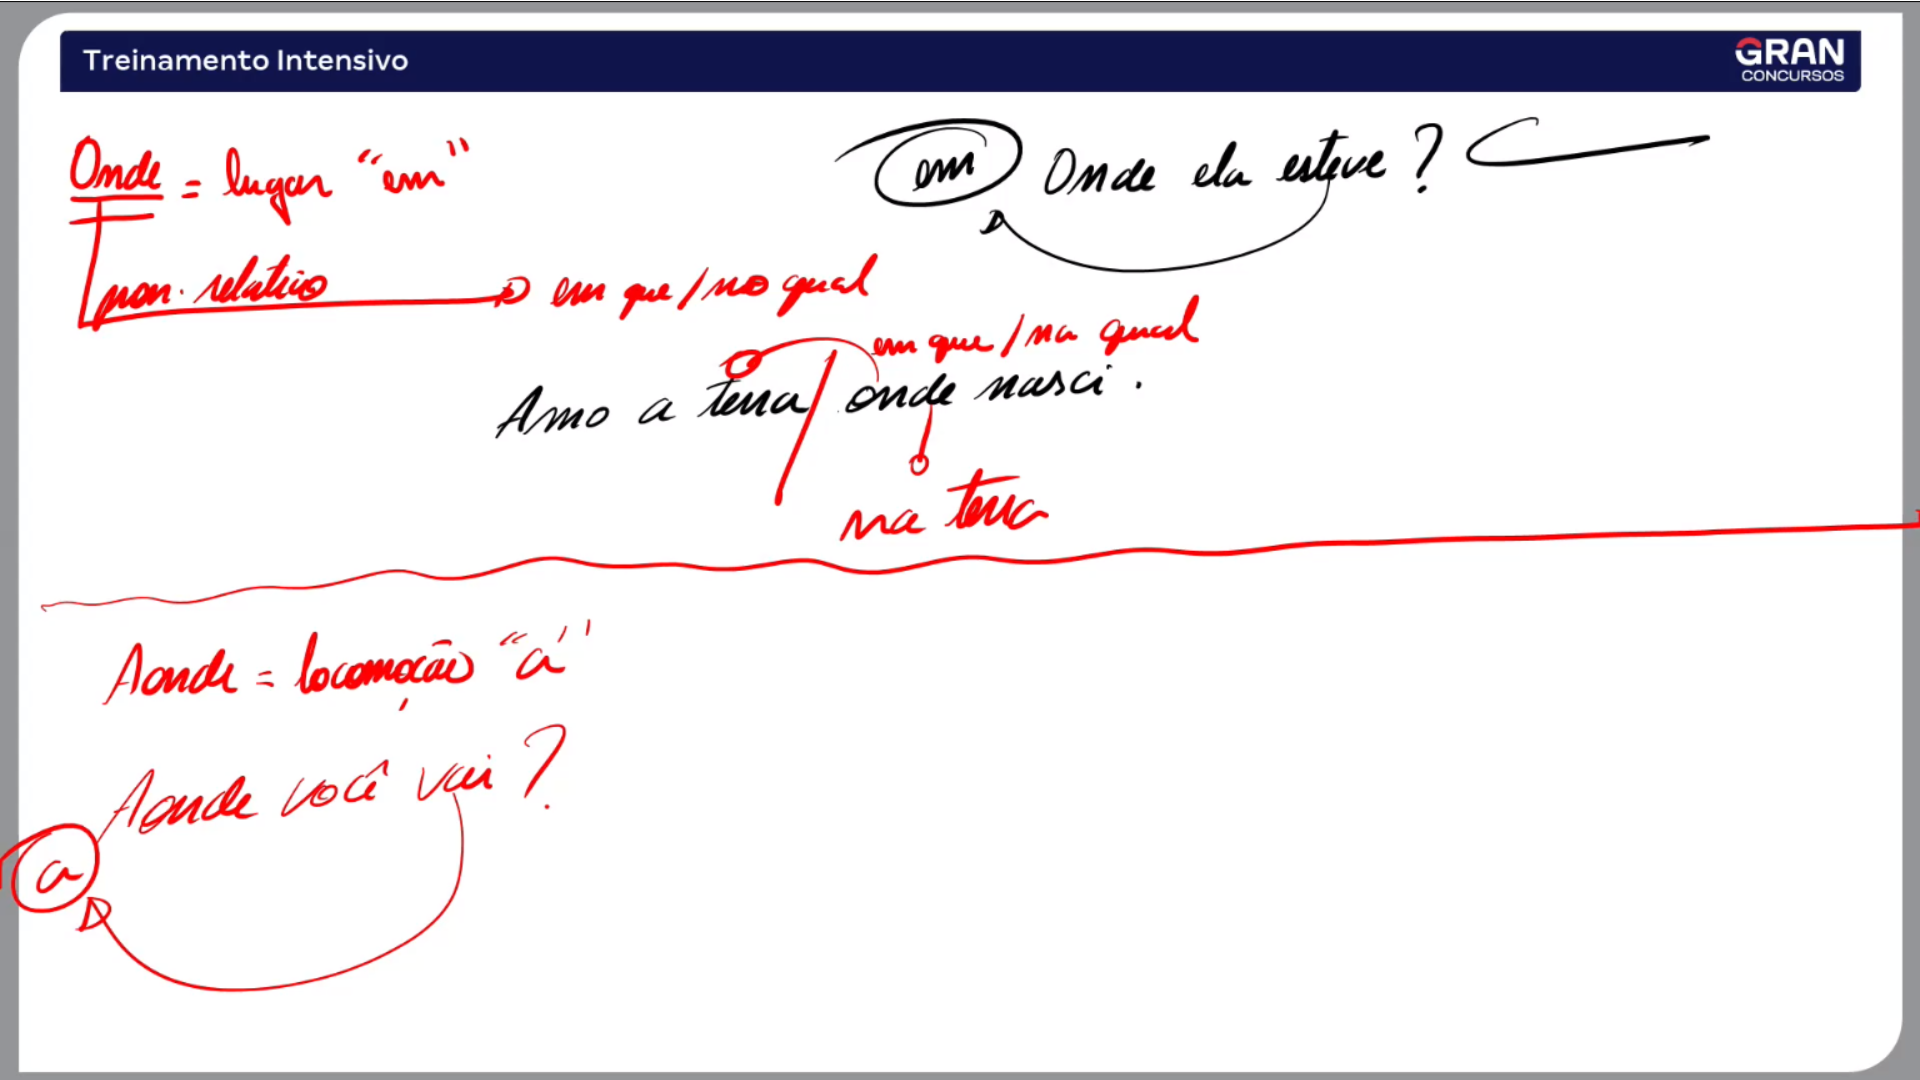 Treinamento Intensivo
GRAN
CONCURSOS
Onde = lugar "em"
em Onde ela esteve?
pron. relativo em que / no qual
em que / na qual
Amo a terra / onde nasci.
na terra
Aonde = locomoção "a"
Aonde você vai?
a